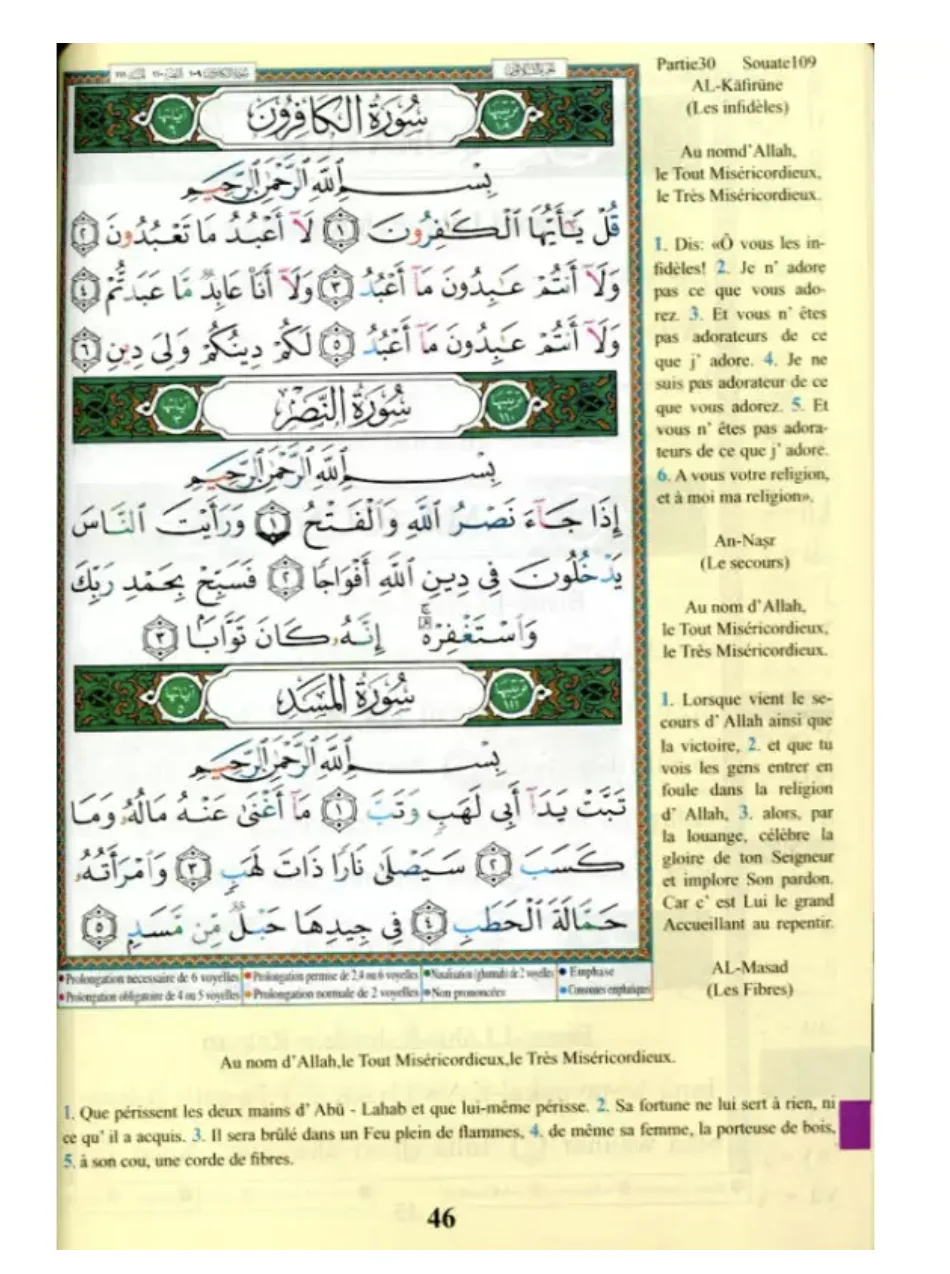 Partie30 Souate109
AL-Kāfirūne
(Les infidèles)
Au nomd'Allah,
le Tout Miséricordieux,
le Très Miséricordieux.
1. Dis: «Ô vous les in-
fidèles! 2. Je n' adore
pas ce que vous ado-
rez. 3. Et vous n' êtes
pas adorateurs de ce
que j' adore. 4. Je ne
suis pas adorateur de ce
que vous adorez. 5. Et
vous n' êtes pas adora-
teurs de ce que j' adore.
6. A vous votre religion,
et à moi ma religion».
An-Naṣr
(Le secours)
Au nom d'Allah,
le Tout Miséricordieux,
le Très Miséricordieux.
1. Lorsque vient le se-
cours d' Allah ainsi que
la victoire, 2. et que tu
vois les gens entrer en
foule dans la religion
d' Allah, 3. alors, par
la louange, célèbre la
gloire de ton Seigneur
et implore Son pardon.
Car c' est Lui le grand
Accueillant au repentir.
AL-Masad
(Les Fibres)
سُورَةُ الكَافِرُونَ
ترتيبها ١٠٩ آياتها ٦
بِسْمِ ٱللَّهِ ٱلرَّحْمَٰنِ ٱلرَّحِيمِ
قُلْ يَـٰٓأَيُّهَا ٱلْكَـٰفِرُونَ ١ لَآ أَعْبُدُ مَا تَعْبُدُونَ ٢
وَلَآ أَنتُمْ عَـٰبِدُونَ مَآ أَعْبُدُ ٣ وَلَآ أَنَا۠ عَابِدٌ مَّا عَبَدتُّمْ ٤
وَلَآ أَنتُمْ عَـٰبِدُونَ مَآ أَعْبُدُ ٥ لَكُمْ دِينُكُمْ وَلِىَ دِينِ ٦
سُورَةُ النَّصْرِ
ترتيبها ١١٠ آياتها ٣
بِسْمِ ٱللَّهِ ٱلرَّحْمَٰنِ ٱلرَّحِيمِ
إِذَا جَآءَ نَصْرُ ٱللَّهِ وَٱلْفَتْحُ ١ وَرَأَيْتَ ٱلنَّاسَ
يَدْخُلُونَ فِى دِينِ ٱللَّهِ أَفْوَاجًا ٢ فَسَبِّحْ بِحَمْدِ رَبِّكَ
وَٱسْتَغْفِرْهُ ۚ إِنَّهُۥ كَانَ تَوَّابًۢا ٣
سُورَةُ المَسَدِ
ترتيبها ١١١ آياتها ٥
بِسْمِ ٱللَّهِ ٱلرَّحْمَٰنِ ٱلرَّحِيمِ
تَبَّتْ يَدَآ أَبِى لَهَبٍ وَتَبَّ ١ مَآ أَغْنَىٰ عَنْهُ مَالُهُۥ وَمَا
كَسَبَ ٢ سَيَصْلَىٰ نَارًا ذَاتَ لَهَبٍ ٣ وَٱمْرَأَتُهُۥ
حَمَّالَةَ ٱلْحَطَبِ ٤ فِى جِيدِهَا حَبْلٌ مِّن مَّسَدٍۭ ٥
Prolongation nécessaire de 6 voyelles Prolongation permise de 2,4 ou 6 voyelles Nasalisation (ghunnah) de 2 voyelles Emphase
Prolongation obligatoire de 4 ou 5 voyelles Prolongation normale de 2 voyelles Non prononcées Consonnes emphatiques
Au nom d'Allah,le Tout Miséricordieux,le Très Miséricordieux.
1. Que périssent les deux mains d' Abū - Lahab et que lui-même périsse. 2. Sa fortune ne lui sert à rien, ni
ce qu' il a acquis. 3. Il sera brûlé dans un Feu plein de flammes, 4. de même sa femme, la porteuse de bois,
5. à son cou, une corde de fibres.
46